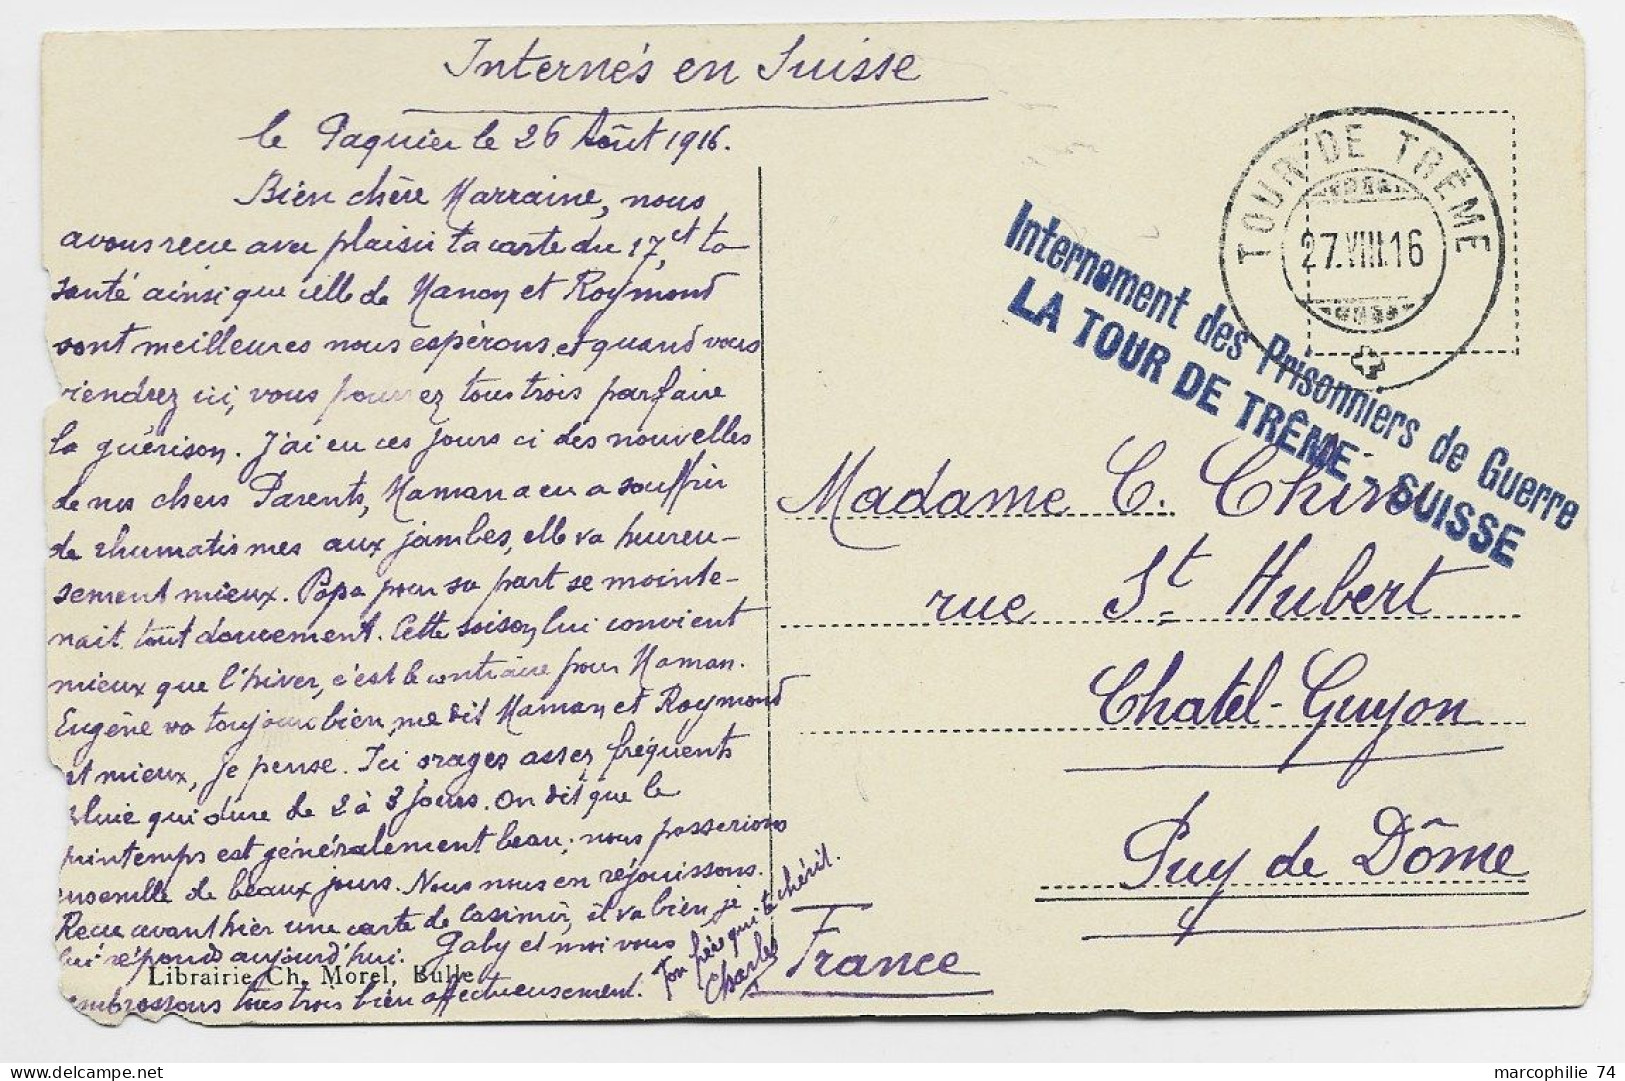 Internés en Suisse
le Paquier le 26 Août 1916.
Bien chère Marraine, nous
avons reçu avec plaisir ta carte du 17, et ta
santé ainsi que celle de Manon et Raymond
sont meilleures nous espérons et quand vous
viendrez ici, vous pourrez tous trois parfaire
la guérison. J'ai eu ces jours ci des nouvelles
de nos chers Parents, Maman a eu a souffrir
de rhumatismes aux jambes, elle va heureu-
sement mieux. Papa pour sa part se mainte-
nait tout doucement. Cette saison lui convient
mieux que l'hiver, c'est le contraire pour Maman.
Eugène va toujours bien, me dit Maman et Raymond
et mieux, je pense. Ici orages assez fréquents
pluie qui dure de 2 à 3 jours. On dit que le
printemps est généralement beau; nous passerions
ensemble de beaux jours. Nous nous en réjouissons.
Reçu avant hier une carte de Casimir, il va bien je
lui réponds aujourd'hui. Gaby et moi vous
embrassons tous trois bien affectueusement.
Ton frère qui te chérit.
Charles
Librairie Ch. Morel, Bulle
TOUR DE TRÊME
27.VIII.16
Internement des Prisonniers de Guerre
LA TOUR DE TRÊME - SUISSE
Madame C.
rue St Hubert
Chatel-Guyon
Puy de Dôme
France
marcophilie 74